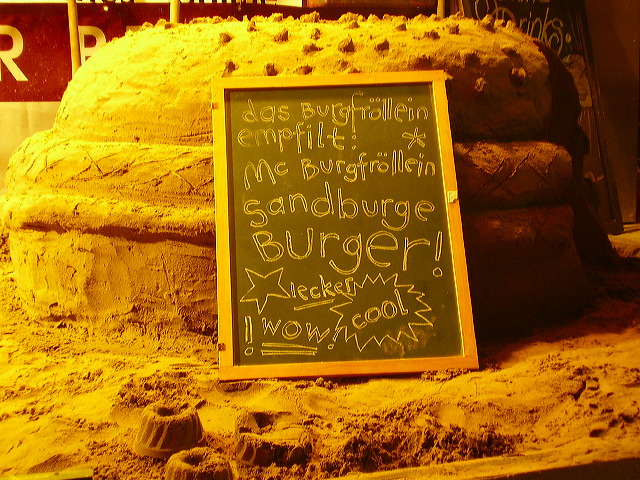 das Burgfröllein
empfilt:
Mc Burgfröllein
sandburge
Burger!
lecker
cool
!wow!